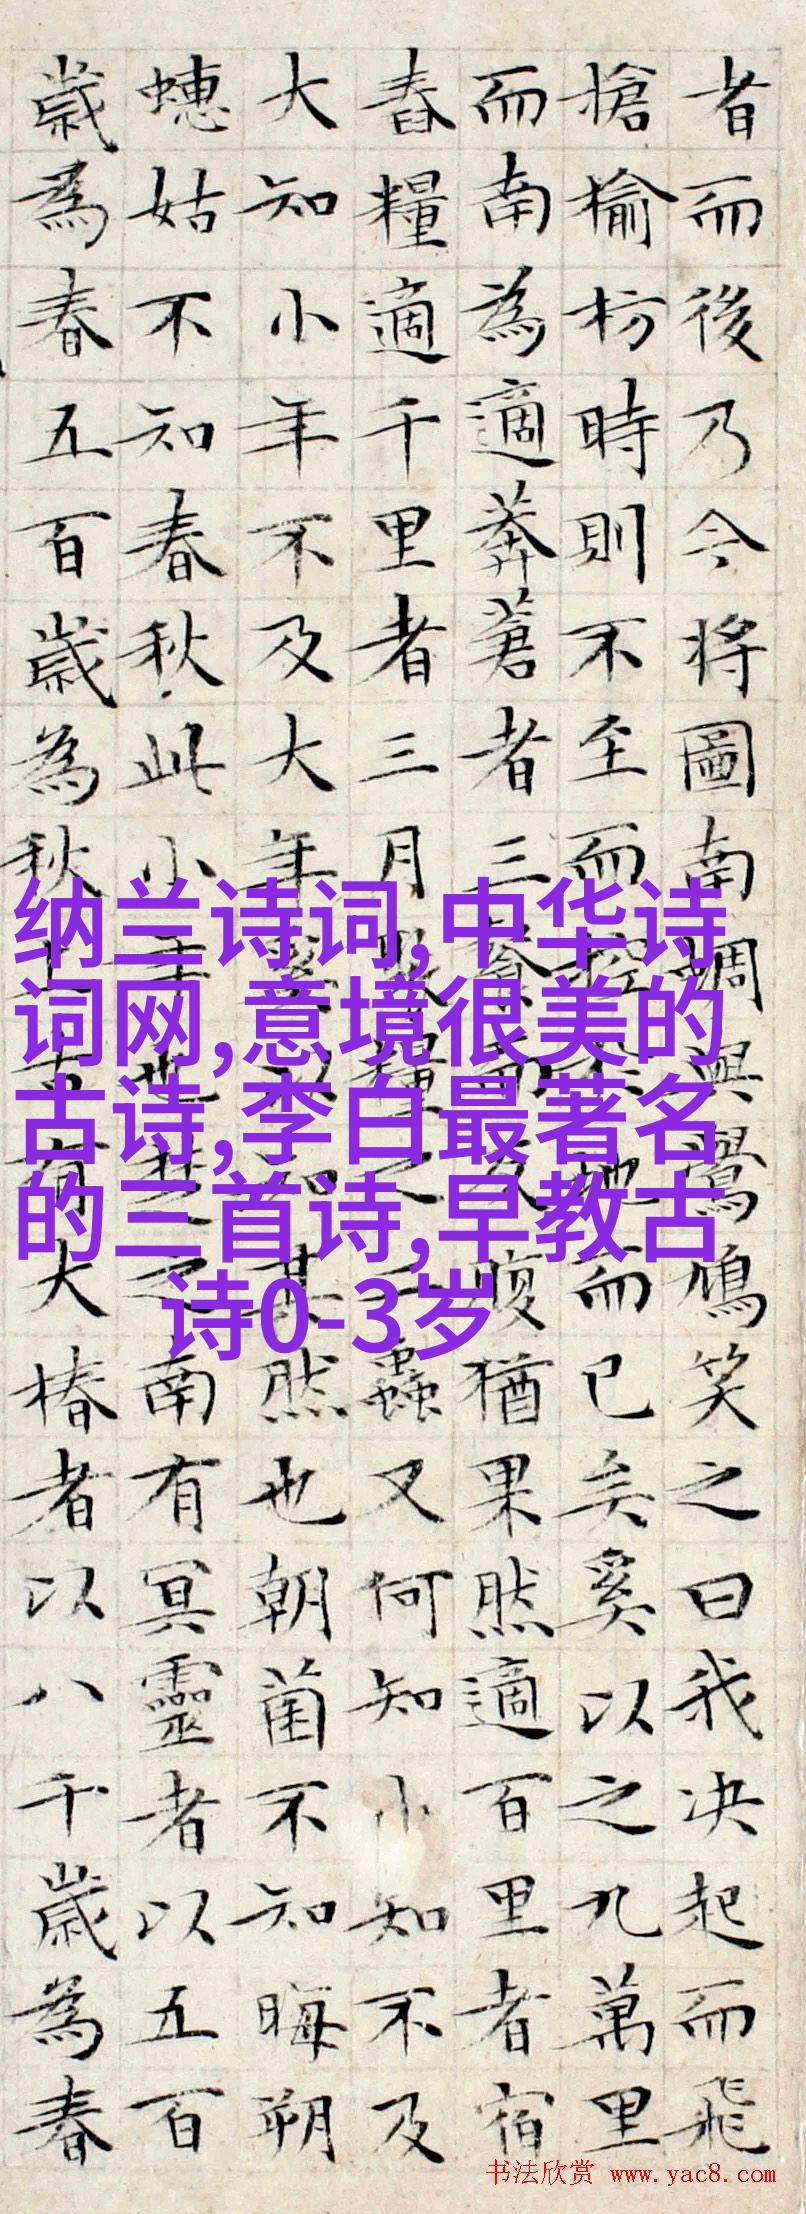 者而後乃今將圖南蜩與鷽鳩笑之曰我决起而飛
搶榆枋時則不至而控於地而已矣奚以之九萬里
而南為適莽蒼者三餐而反腹猶果然適百里者宿
舂糧適千里者三月聚糧之二蟲又何知小知不及
大知小年不及大年奚以知其然也朝菌不知晦朔
蟪姑不知春秋此小年也楚之南有冥靈者以五百
歲為春五百歲為秋上古有大椿者以八千歲為春
纳兰诗词,中华诗
词网,意境很美的
古诗,李白最著名
的三首诗,早教古
诗0-3岁
书法欣赏 www.yac8.com